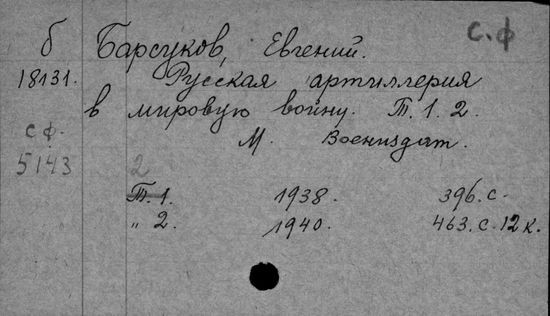 с.ф
б Барсуков, Евгений.
18131. Русская артиллерия
в мировую войну. Т. 1. 2.
сф. М. Воениздат.
5143 2
Т. 1. 1938. 396. с.
„ 2. 1940. 463. с. 12 к.